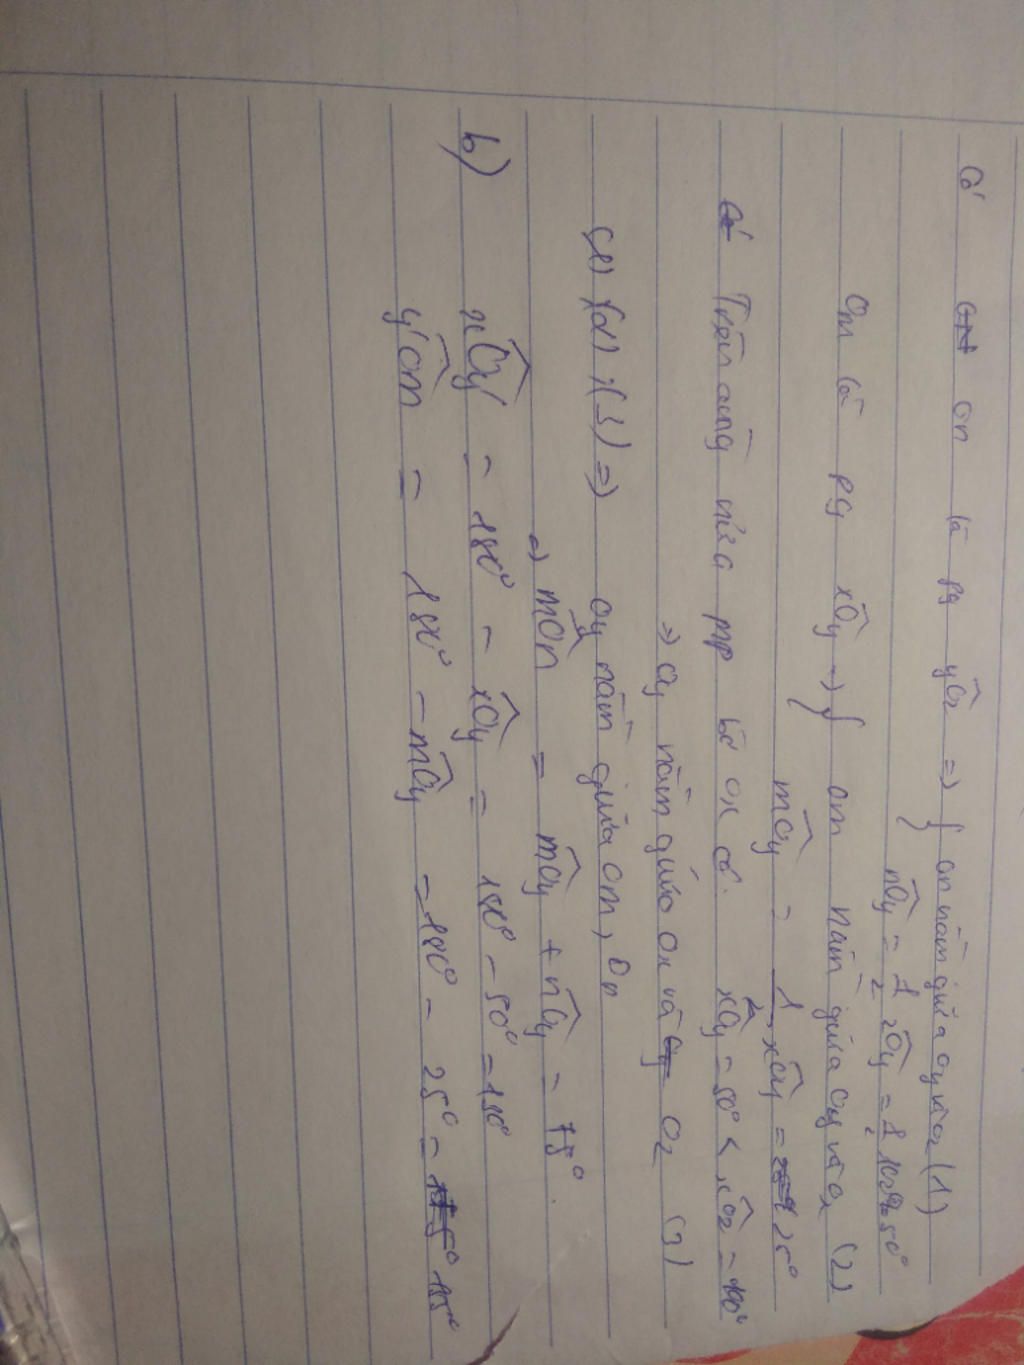 Có On là pg yÔz => { On nằm giữa Oy và Oz (1)
nÔy = 1/2 zÔy = 1/2 100° = 50°
Om là pg xÔy => { Om nằm giữa Oy và Ox (2)
mÔy = 1/2 xÔy = 25°
Trên cùng nửa mp bờ Ox có: xÔy = 50° < xÔz = 
=> Oy nằm giữa Ox và Oz (3)
(1) ; (2) ; (3) => Oy nằm giữa Om, On
=> mÔn = mÔy + nÔy = 75°.
b) xÔy' = 180° - xÔy = 180° - 50° = 130°
y'Ôm = 180° - mÔy = 180° - 25° = 155°